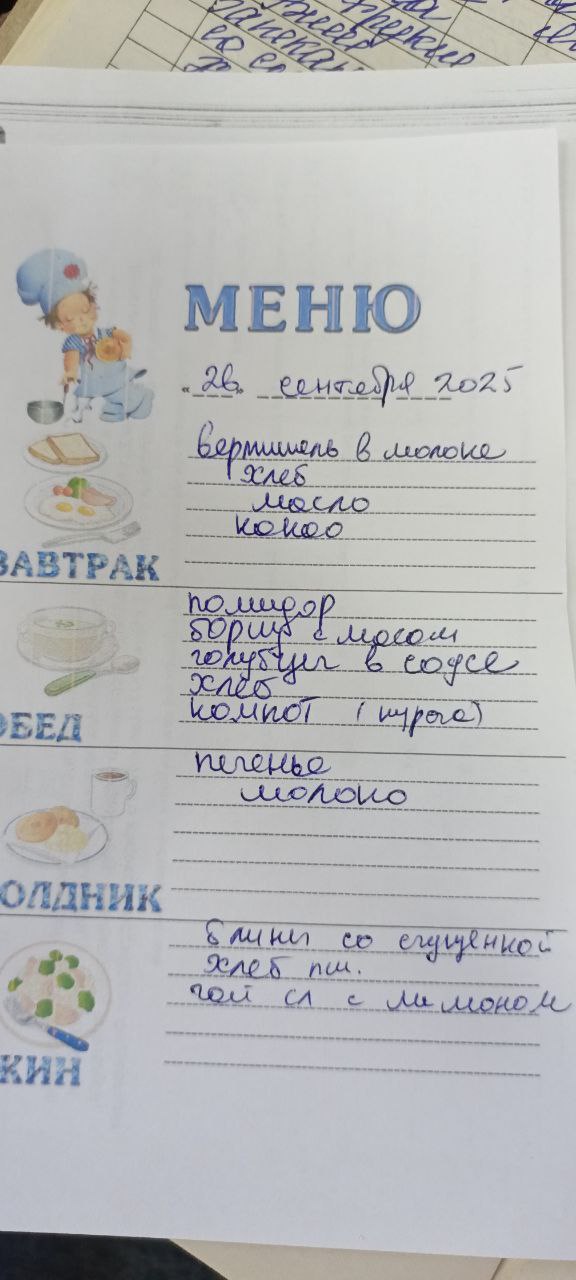 МЕНЮ
"26" сентября 2025
Вермишель в молоке
хлеб
масло
какао
ЗАВТРАК
помидор
борщ с мясом
голубцы в соусе
хлеб
компот (курага)
ОБЕД
печенье
молоко
ОЛДНИК
блины со сгущенкой
хлеб пш.
чай сл с лимоном
ЖИН